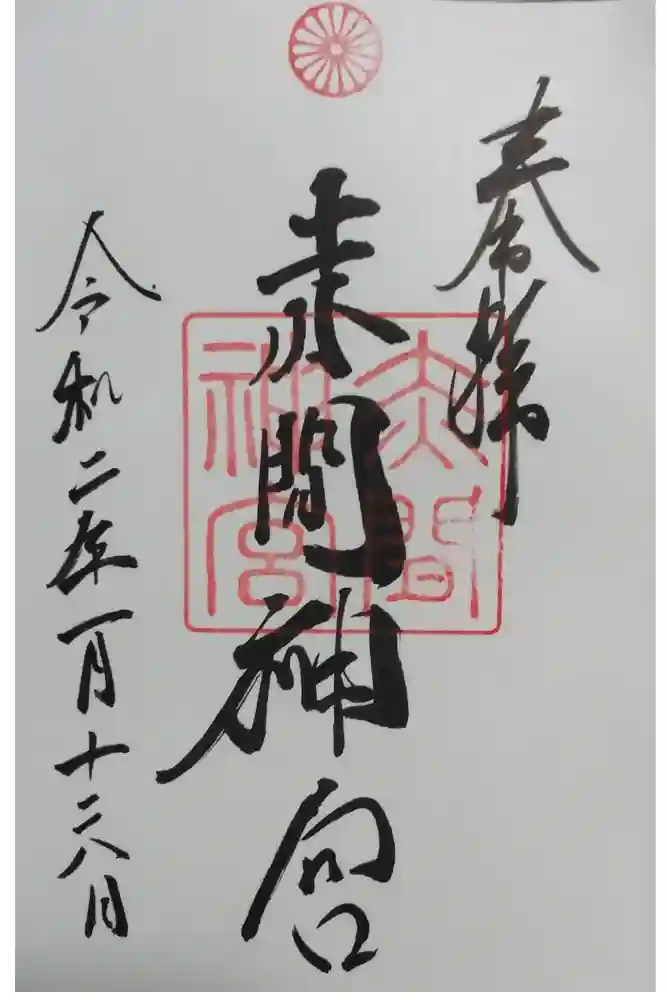 奉拝
赤間神宮
赤間神宮
令和二年一月十六日